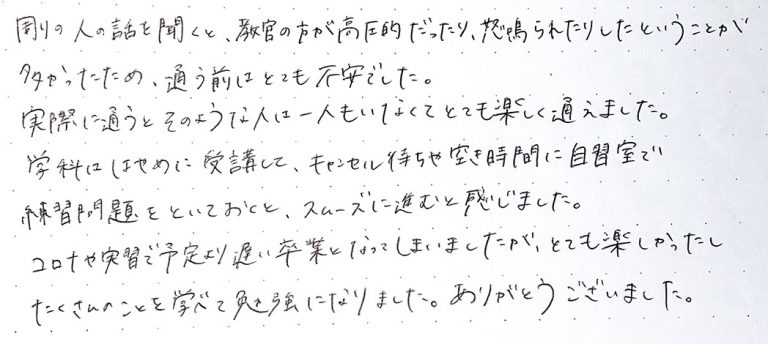 周りの人の話を聞くと、教官の方が高圧的だったり、怒鳴られたりしたということが
多かったため、通う前はとても不安でした。
実際に通うとそのような人は一人もいなくてとても楽しく通えました。
学科ははやめに受講して、キャンセル待ちや空き時間に自習室で
練習問題をといておくと、スムーズに進むと感じました。
コロナや実習で予定より遅い卒業となってしまいましたが、とても楽しかったし
たくさんのことを学べて勉強になりました。ありがとうございました。